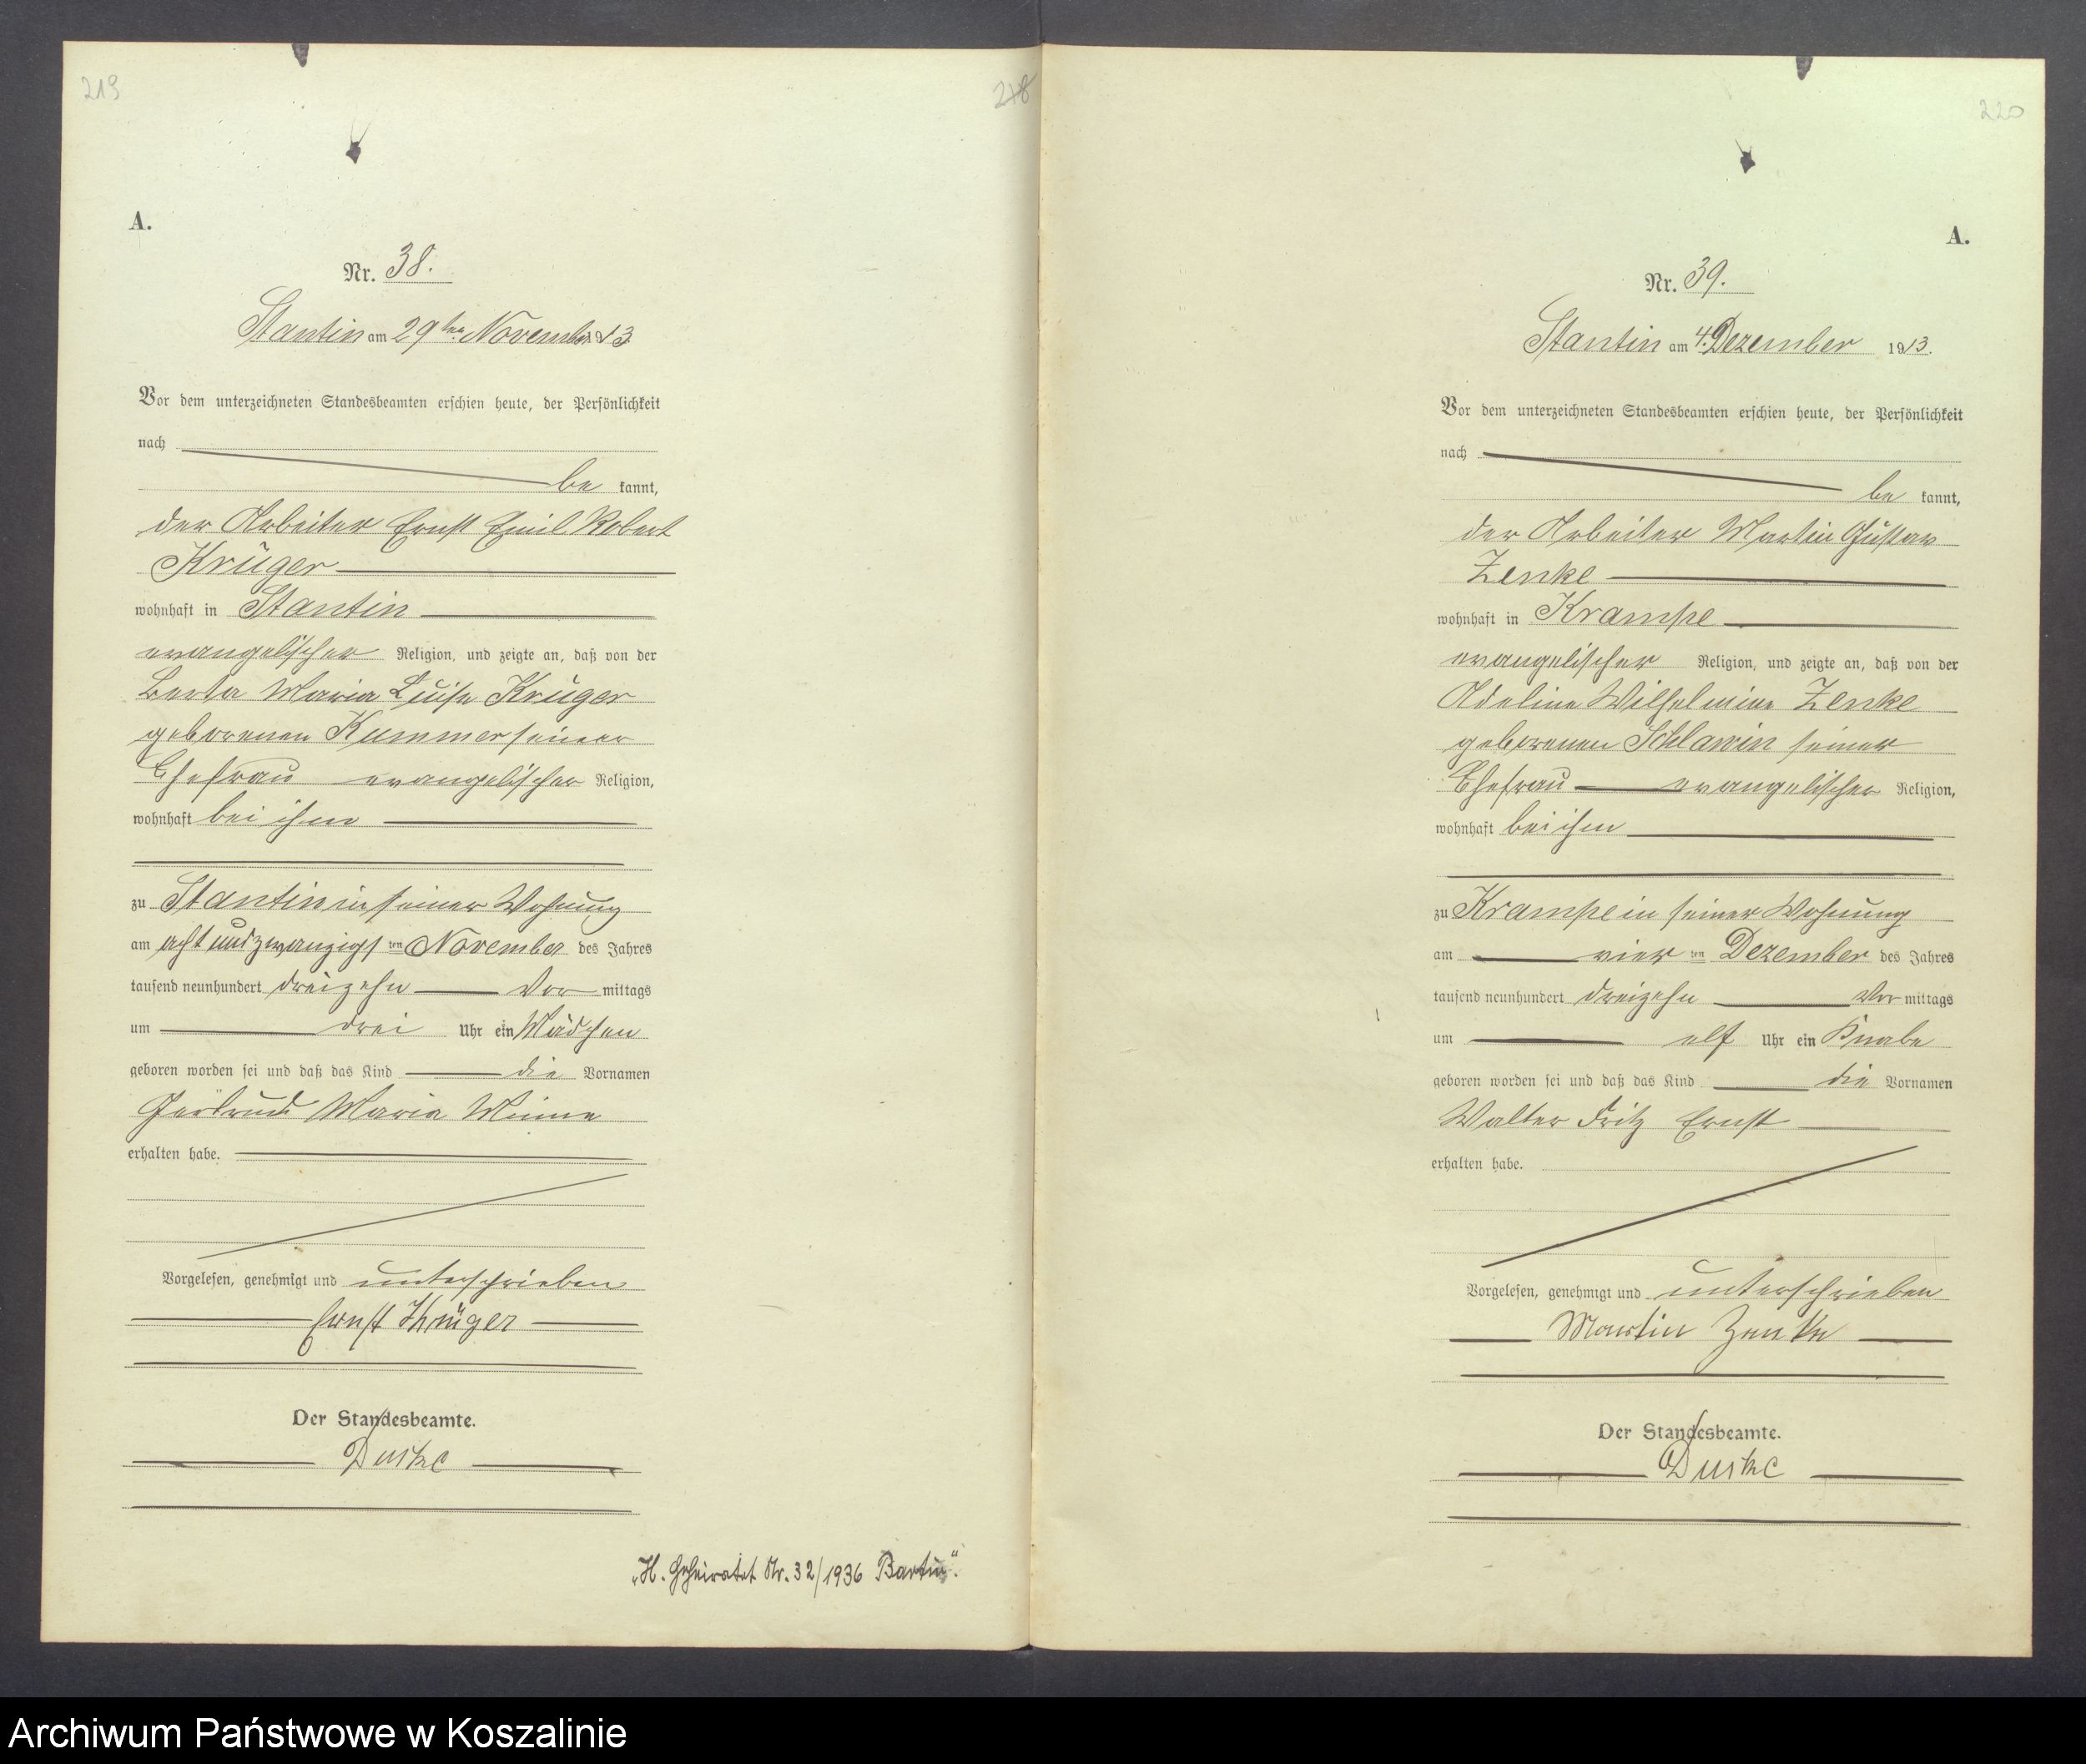 219
218
A.
Nr. 38.
Stantin am 29ten November 1913
Vor dem unterzeichneten Standesbeamten erschien heute, der Persönlichkeit
nach
be kannt,
der Arbeiter Ernst Emil Robert
Krüger
wohnhaft in Stantin
evangelischer Religion, und zeigte an, daß von der
Berta Maria Luise Krüger
geborenen Kummer seiner
Ehefrau evangelischer Religion,
wohnhaft bei ihm
zu Stantin in seiner Wohnung
am acht und zwanzigsten November des Jahres
tausend neunhundert dreizehn Vor mittags
um drei Uhr ein Mädchen
geboren worden sei und daß das Kind die Vornamen
Gertrud Maria Minna
erhalten habe.
Vorgelesen, genehmigt und unterschrieben
Ernst Krüger
Der Standesbeamte.
Duske
„H. Geheiratet Nr. 32/1936 Bartin".
220
A.
Nr. 39.
Stantin am 4. Dezember 1913.
Vor dem unterzeichneten Standesbeamten erschien heute, der Persönlichkeit
nach
be kannt,
der Arbeiter Martin Gustav
Zenke
wohnhaft in Krampe
evangelischer Religion, und zeigte an, daß von der
Adeline Wilhelmine Zenke
geborenen Schlawin seiner
Ehefrau evangelischer Religion,
wohnhaft bei ihm
zu Krampe in seiner Wohnung
am vierten Dezember des Jahres
tausend neunhundert dreizehn Vor mittags
um elf Uhr ein Knabe
geboren worden sei und daß das Kind die Vornamen
Walter Fritz Ernst
erhalten habe.
Vorgelesen, genehmigt und unterschrieben
Martin Zenke
Der Standesbeamte.
Duske
Archiwum Państwowe w Koszalinie